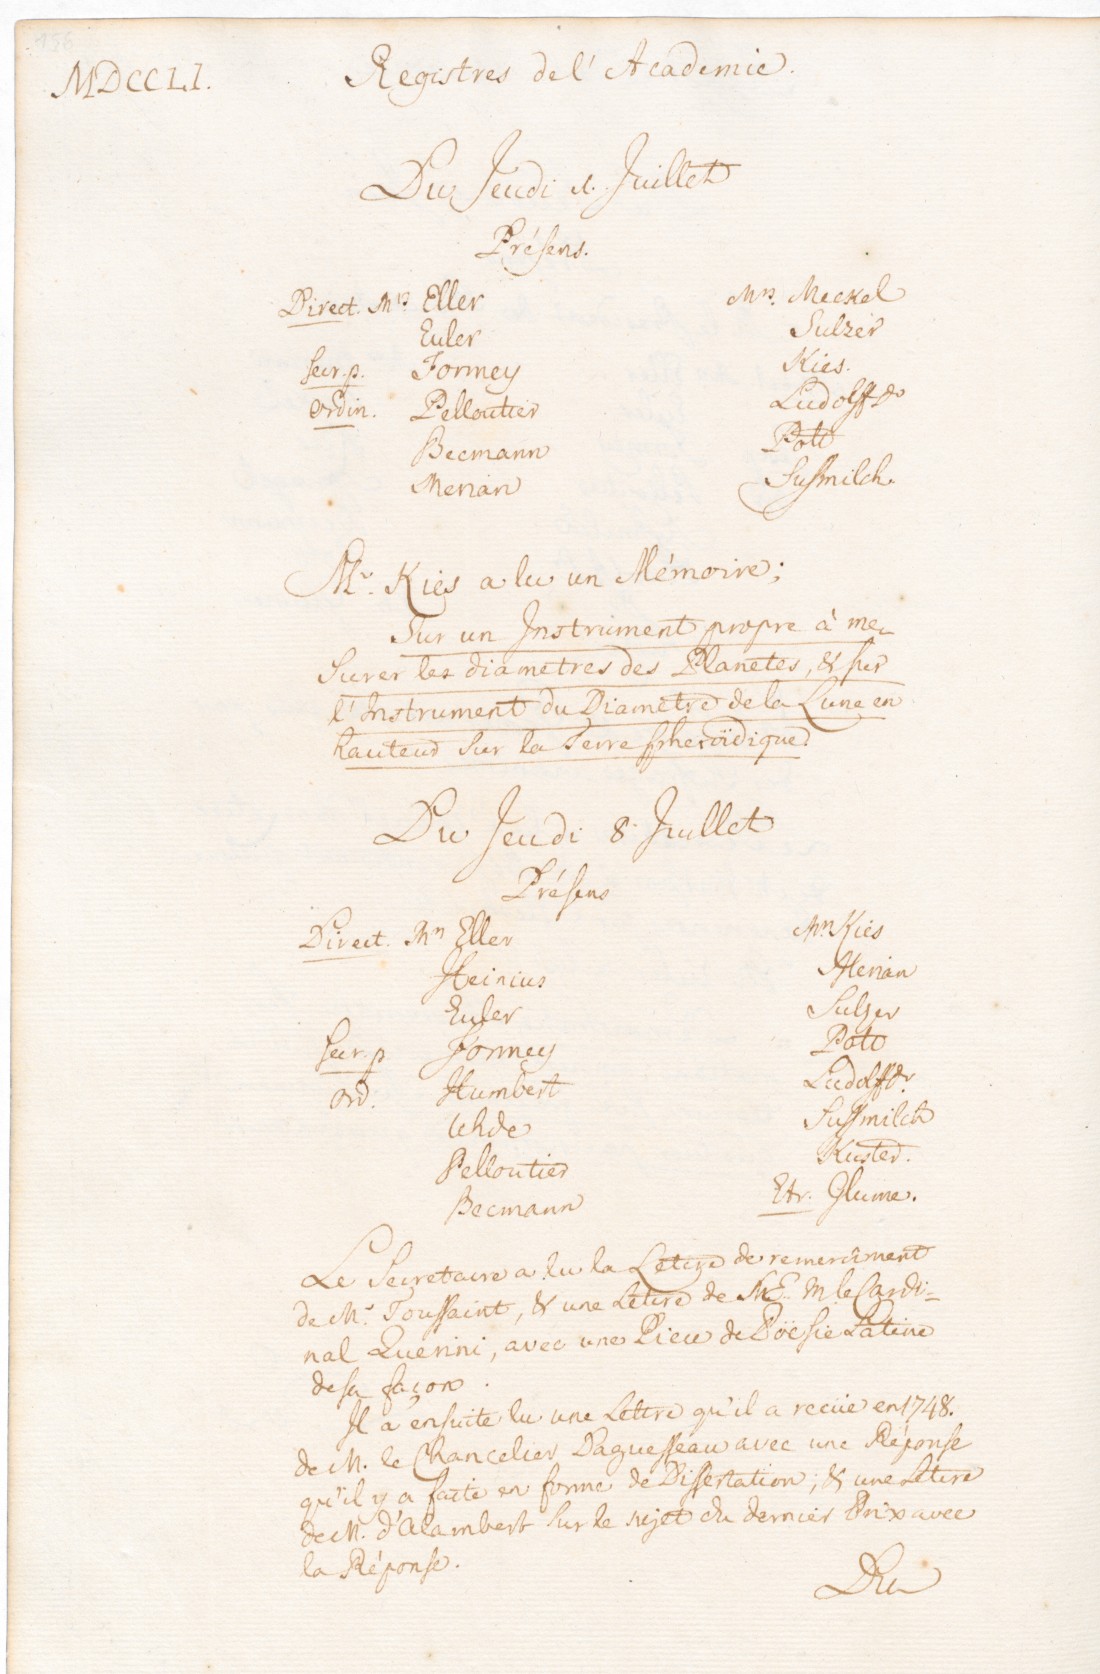 196
MDCCLI.
Registres de l'Academie.
Du Jeudi 1. Juillet
Présens.
Direct. Mrs Eller
Euler
Secr. p. Formey
ordin. Pelloutier
Becmann
Merian
Mrs. Meckel
Sulzer
Kies.
Ludolff Dr
Pott
Sussmilch.
Mr. Kies a lu un Mémoire;
Sur un Instrument propre à me-
surer les diametres des Planetes, & sur
l'Instrument du Diametre de la Lune en
hauteur sur la Terre spheroïdique.
Du Jeudi 8. Juillet
Présens
Direct. Mrs Eller
Heinius
Euler
Secr. p Formey
ord. Humbert
Uhde
Pelloutier
Becmann
Mrs Kies
Merian
Sulzer
Pott
Ludolff Dr.
Sussmilch
Kuster.
Etr. Glume.
Le Secretaire a lu la Lettre de remerciment
de Mr. Toussaint, & une Lettre de S. E. M le Cardi=
nal Querini, avec une Piece de Poësie Latine
de sa façon.
Il a ensuite lu une Lettre qu'il a recüe en 1748.
de M. le Chancelier Daguesseau avec une Réponse
qu'il y a faite en forme de Dissertation; & une Lettre
de M. d'Alambert sur le sujet du dernier Prix avec
la Réponse.
Du